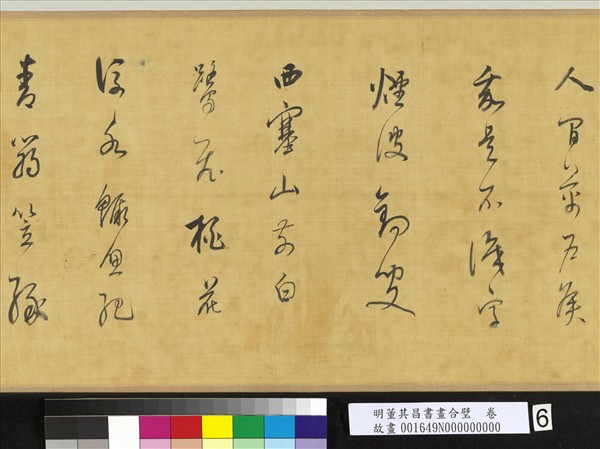 人間萬戶侯
是不識字
煙波釣叟
西塞山前白
鷺飛桃花
流水鱖魚肥
青篛笠綠
明董其昌書畫合璧 卷
故畫 001649N000000000
6